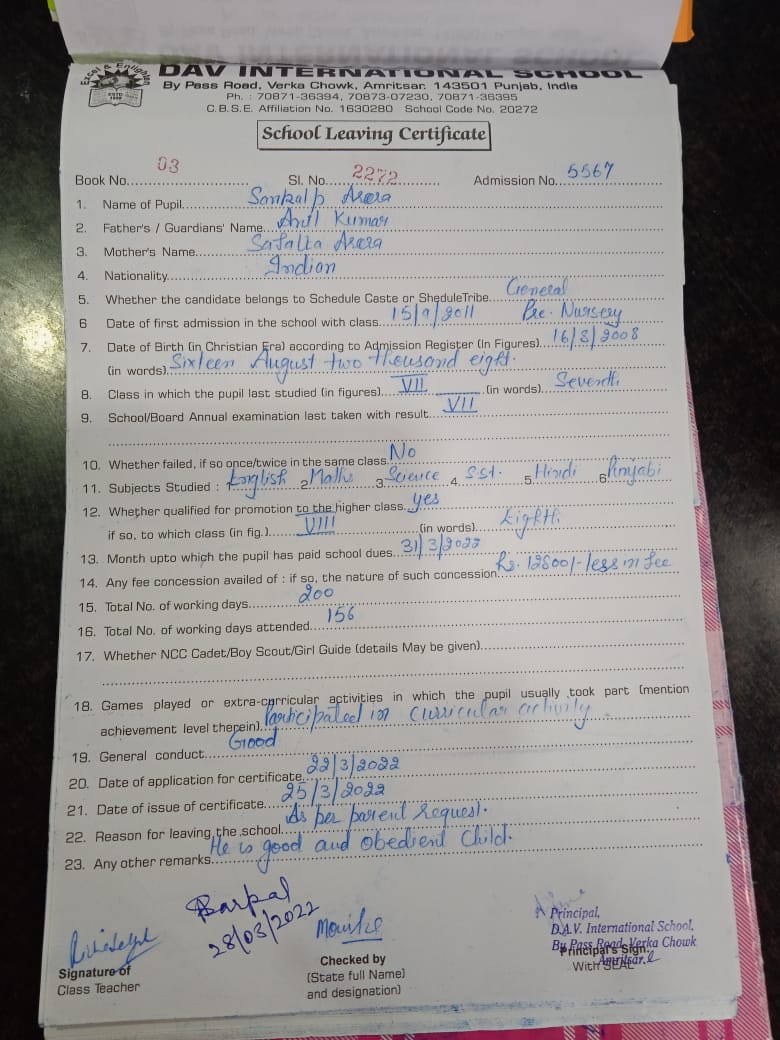 Excel & Enlighten
DAV INTERNATIONAL SCHOOL
By Pass Road, Verka Chowk, Amritsar. 143501 Punjab, India
Ph. : 70871-36394, 70873-07230, 70871-36395
C.B.S.E. Affiliation No. 1630280 School Code No. 20272
School Leaving Certificate
Book No. 03 Sl. No. 2272 Admission No. 5567
1. Name of Pupil Sankalp Arora
2. Father's / Guardians' Name Anil Kumar
3. Mother's Name Safalta Arora
4. Nationality Indian
5. Whether the candidate belongs to Schedule Caste or SheduleTribe General
6 Date of first admission in the school with class 15/9/2011 Pre-Nursery
7. Date of Birth (in Christian Era) according to Admission Register (In Figures) 16/8/2008
(in words) Sixteen August two thousand eight.
8. Class in which the pupil last studied (in figures) VII (in words) Seventh
9. School/Board Annual examination last taken with result VII
10. Whether failed, if so once/twice in the same class No
11. Subjects Studied : English 2 Maths 3 Science 4. S.St. 5 Hindi 6 Punjabi
12. Whether qualified for promotion to the higher class yes
if so, to which class (in fig.) VIII (in words) Eighth
13. Month upto which the pupil has paid school dues 31/3/2022
14. Any fee concession availed of : if so, the nature of such concession Rs. 12800/- less in fee
15. Total No. of working days 200
16. Total No. of working days attended 156
17. Whether NCC Cadet/Boy Scout/Girl Guide (details May be given)
18. Games played or extra-curricular activities in which the pupil usually took part (mention
achievement level therein) Participated in curricular activity
19. General conduct Good
20. Date of application for certificate 22/3/2022
21. Date of issue of certificate 25/3/2022
22. Reason for leaving the school As per parent request.
23. Any other remarks He is good and obedient child.
28/03/2022
Principal,
D.A.V. International School,
By Pass Road, Verka Chowk
Amritsar.
Principal's Sign.
With SEAL
Signature of
Class Teacher
Checked by
(State full Name)
and designation)